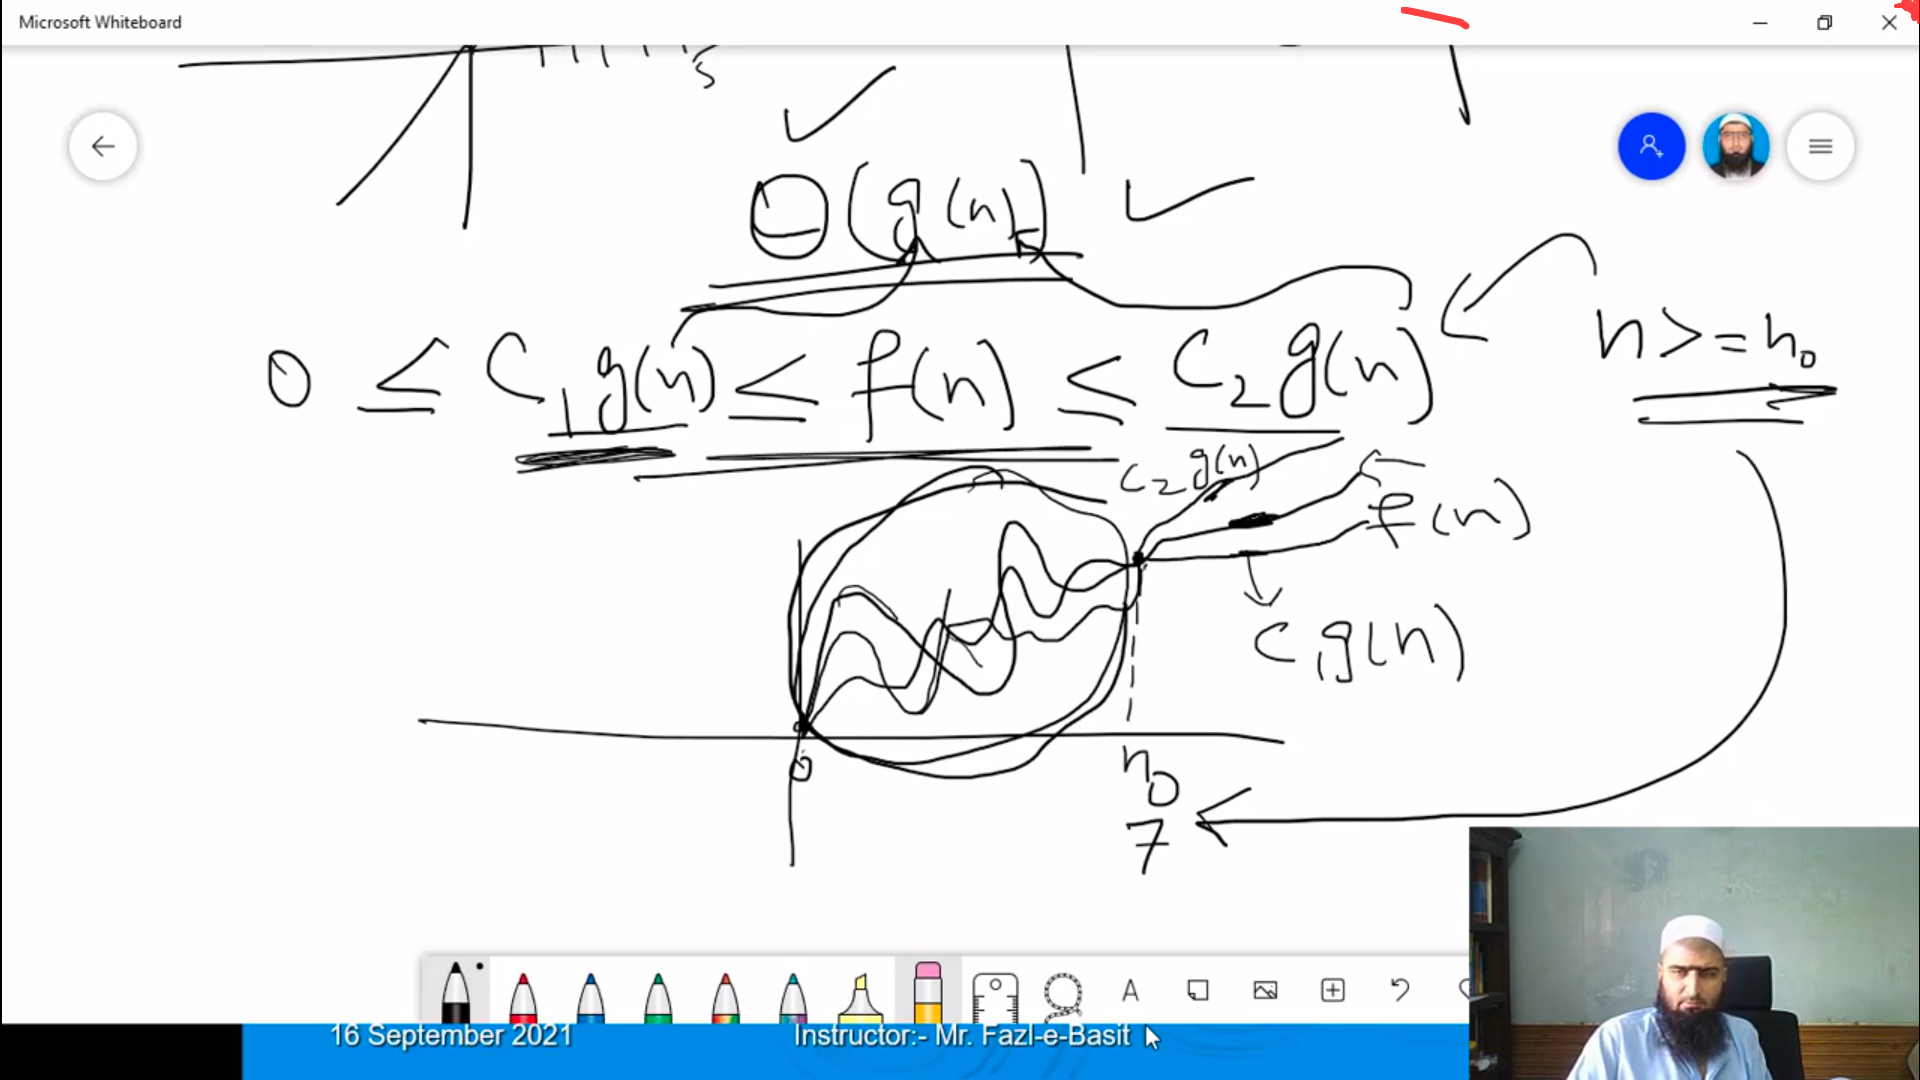 Microsoft Whiteboard
5
Θ(g(n))
0 ≤ C1g(n) ≤ f(n) ≤ C2g(n)
n>=n0
C2g(n)
f(n)
C1g(n)
0
n0
7
A
16 September 2021
Instructor:- Mr. Fazl-e-Basit